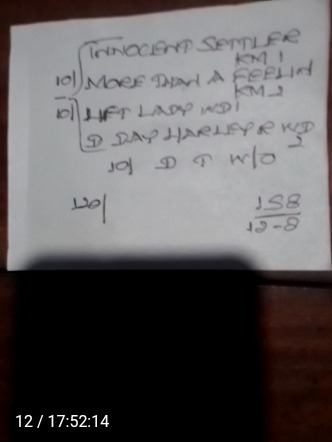 INNOCENT SETTLER
KM 1
10/ MORE THAN A FEELIN
KM 2
10/ LIFT LADY WD1
D DAY HARLEY R WD
2
10/ D T W/O
120/ 158
12-8
12 / 17:52:14